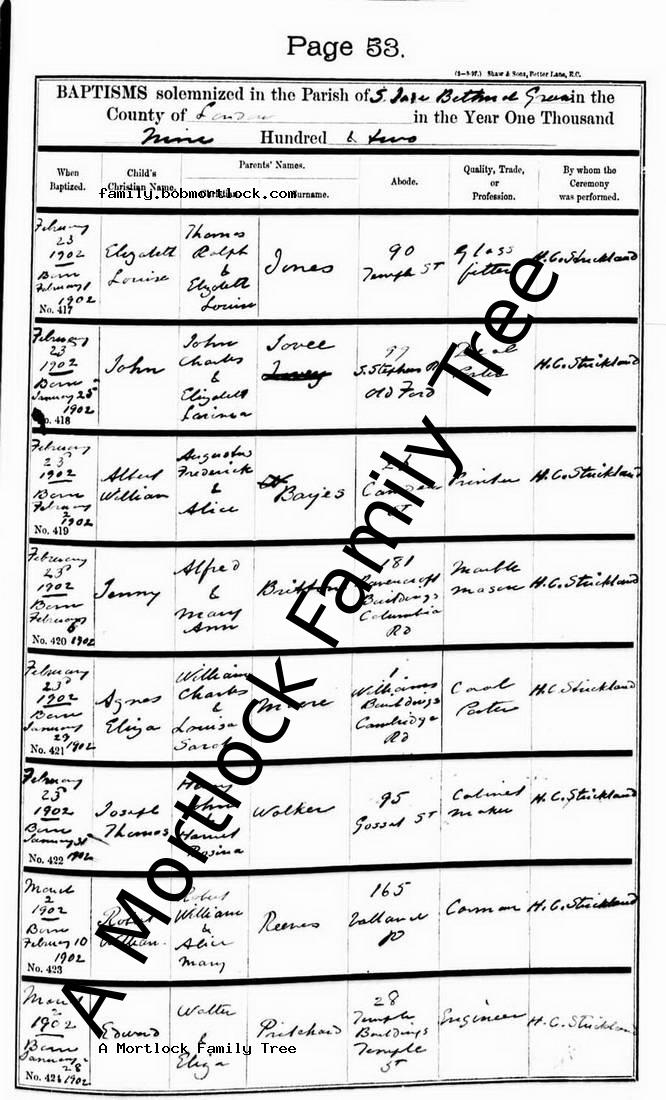 Page 53.
(1-3-97.) Shaw & Sons, Fetter Lane, E.C.
BAPTISMS solemnized in the Parish of S. Bethnal Green in the
County of London in the Year One Thousand
Nine Hundred & two
When Baptized.
Child's Christian Name.
Parents' Names.
Surname.
Abode.
Quality, Trade, or Profession.
By whom the Ceremony was performed.
family.bobmortlock.com
February 23 1902 Born February 1 1902
No. 417
Elizabeth Louise
Thomas Ralph & Elizabeth Louise
Jones
90 Temple St
Glass fitter
H.C. Strickland
February 23 1902 Born January 25 1902
No. 418
John
John Charles & Elizabeth
Jovee
99 S. Stephens Rd Old Ford
H.C. Strickland
February 23 1902 Born February 2 1902
No. 419
Albert William
Augustus Frederick & Alice
Barjes
St
Printer
H.C. Strickland
February 23 1902 Born February 6 1902
No. 420
Jenny
Alfred & Mary Ann
Britton
181 Ravenscroft Buildings Columbia Rd
Marble Mason
H.C. Strickland
February 23 1902 Born January 29 1902
No. 421
Agnes Eliza
William Charles & Louisa Sarah
Moore
1 Williams Buildings Cambridge Rd
Coal Porter
H.C. Strickland
February 23 1902 Born January 31 1902
No. 422
Joseph Thomas
Henry John & Harriet Rosina
Walker
95 Gosset St
Cabinet Maker
H.C. Strickland
March 2 1902 Born February 10 1902
No. 423
Robert William
Robert William & Alice Mary
Reeves
165 Rd
Carman
H.C. Strickland
March 2 1902 Born January 28 1902
No. 424
Edward
Walter & Eliza
Pritchard
28 Temple Buildings Temple St
Engineer
H.C. Strickland
A Mortlock Family Tree
A Mortlock Family Tree